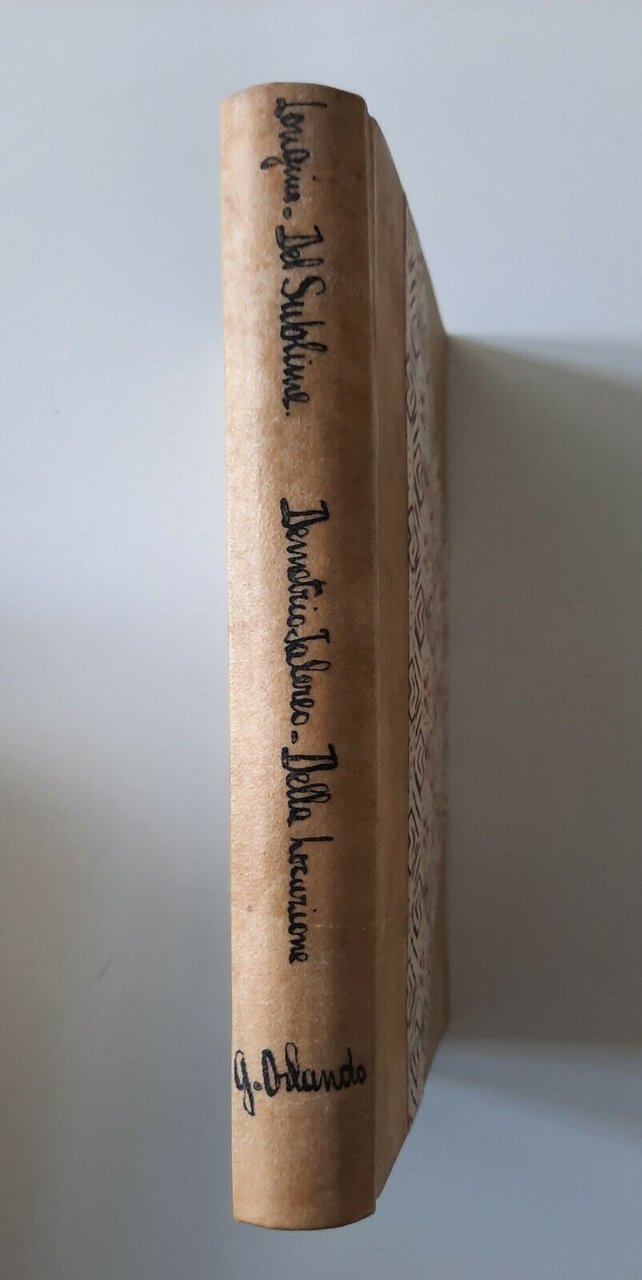 Longino - Del Sublime.
Demetrio Falereo - Della Locuzione
G. Orlando